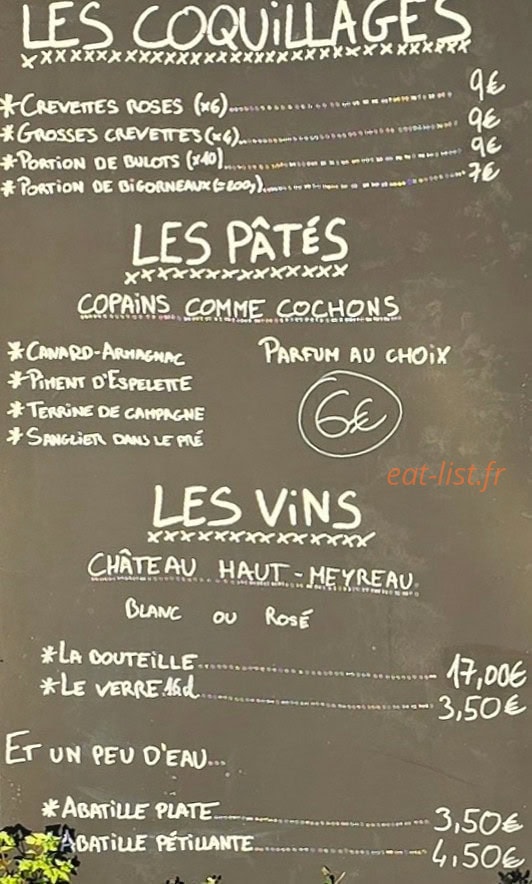 LES COQUILLAGES
*CREVETTES ROSES (x6) 9€
*GROSSES CREVETTES (x4) 9€
*PORTION DE BULOTS (x10) 9€
*PORTION DE BIGORNEAUX (≈200g) 7€
LES PÂTÉS
COPAINS COMME COCHONS
*CANARD-ARMAGNAC
*PIMENT D'ESPELETTE
*TERRINE DE CAMPAGNE
*SANGLIER DANS LE PRÉ
PARFUM AU CHOIX
6€
eat-list.fr
LES VINS
CHÂTEAU HAUT-MEYREAU
BLANC OU ROSÉ
*LA BOUTEILLE 17,00€
*LE VERRE 16cl 3,50€
ET UN PEU D'EAU...
*ABATILLE PLATE 3,50€
ABATILLE PÉTILLANTE 4,50€